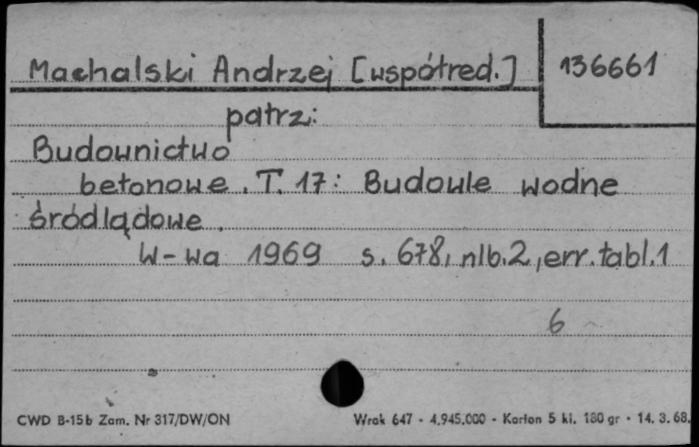 Machalski Andrzej [współred.] 136661
patrz:
Budownictwo
betonowe. T. 17: Budowle wodne
śródlądowe.
W-wa 1969 s. 678, nlb. 2, err. tabl. 1
6
CWD B-15b Zam. Nr 317/DW/ON Wrak 647 - 4.945.000 - Karton 5 kl. 180 gr - 14. 3. 68.